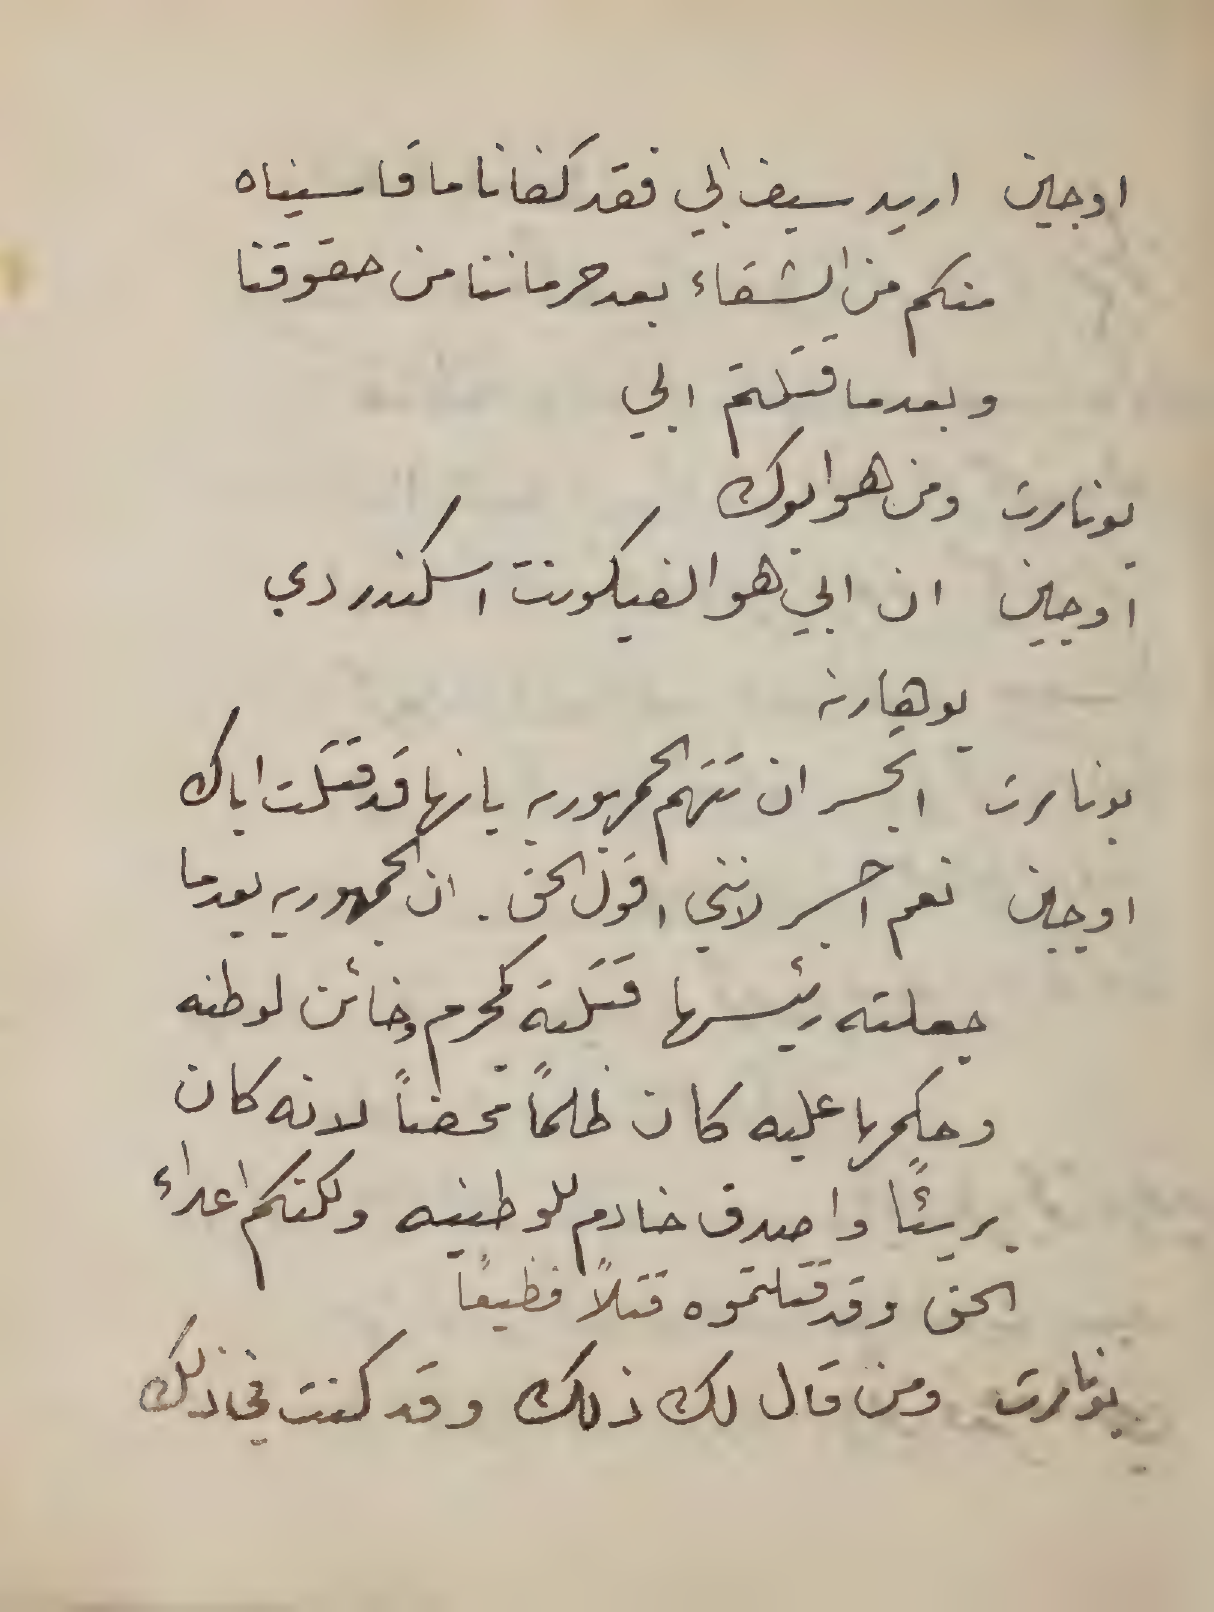 اوجين اريد سيف ابي فقد كفانا ما قاسيناه
منكم من الشقاء بعد حرماننا من حقوقنا
وبعدما قتلتم ابي
بونابرت ومن هو ابوك
اوجين ان ابي هو الفيكونت اسكندر دي
بوهارنه
بونابرت اتجسر ان تتهم الجمهوريه بانها قد قتلت اباك
اوجين نعم اجسر لانني اقول الحق. ان الجمهوريه بعدما
جعلته رئيسها قتلته كمجرم وخائن لوطنه
وحكمها عليه كان ظلماً محضاً لانه كان
بريئاً واصدق خادم للوطنيه ولكنكم اعداء
الحق وقد قتلتموه قتلاً فظيعاً
بونابرت ومن قال لك ذلك وقد كنت في ذلك